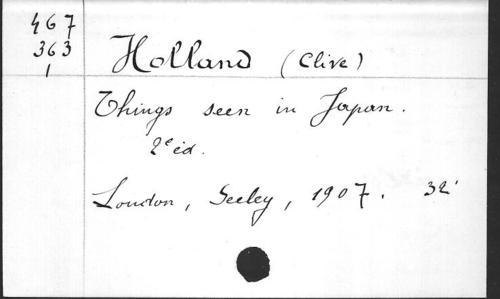 467
363
1
Holland (Clive)
Things seen in Japan.
2e éd.
London, Seeley, 1907. 32'